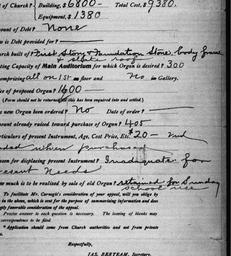 of Church? Building, $6800— Total Cost, $9380.
Equipment, $1380
Amount of Debt? None
is Debt provided for?
Church built of? First Story + Foundation Stone, body frame
+ slate roof
Seating Capacity of Main Auditorium for which Organ is desired? 300
comprising all on 1st floor and No in Gallery.
Price of proposed Organ? 1600—
(Form should not be returned till this has been inquired into and settled.)
new Organ been ordered? No Date of order?
amount already raised toward purchase of Organ? 405
Particulars of present Instrument, Age, Cost Price, Etc. $20— 2nd
handed when purchased
Reason for displacing present Instrument? Inadequate for
present Needs
much is to be realized by sale of old Organ? retained for Sunday
School use
To facilitate Mr. Carnegie's consideration of your appeal, will you oblige by
in the above, which is sent for the purpose of summarizing information and does
imply favorable consideration of the appeal.
Precise answer to each question is necessary. The leaving of blanks may
correspondence to be filed.
Application should come from Church authorities and not from private
Respectfully,
JAS. BERTRAM, Secretary.